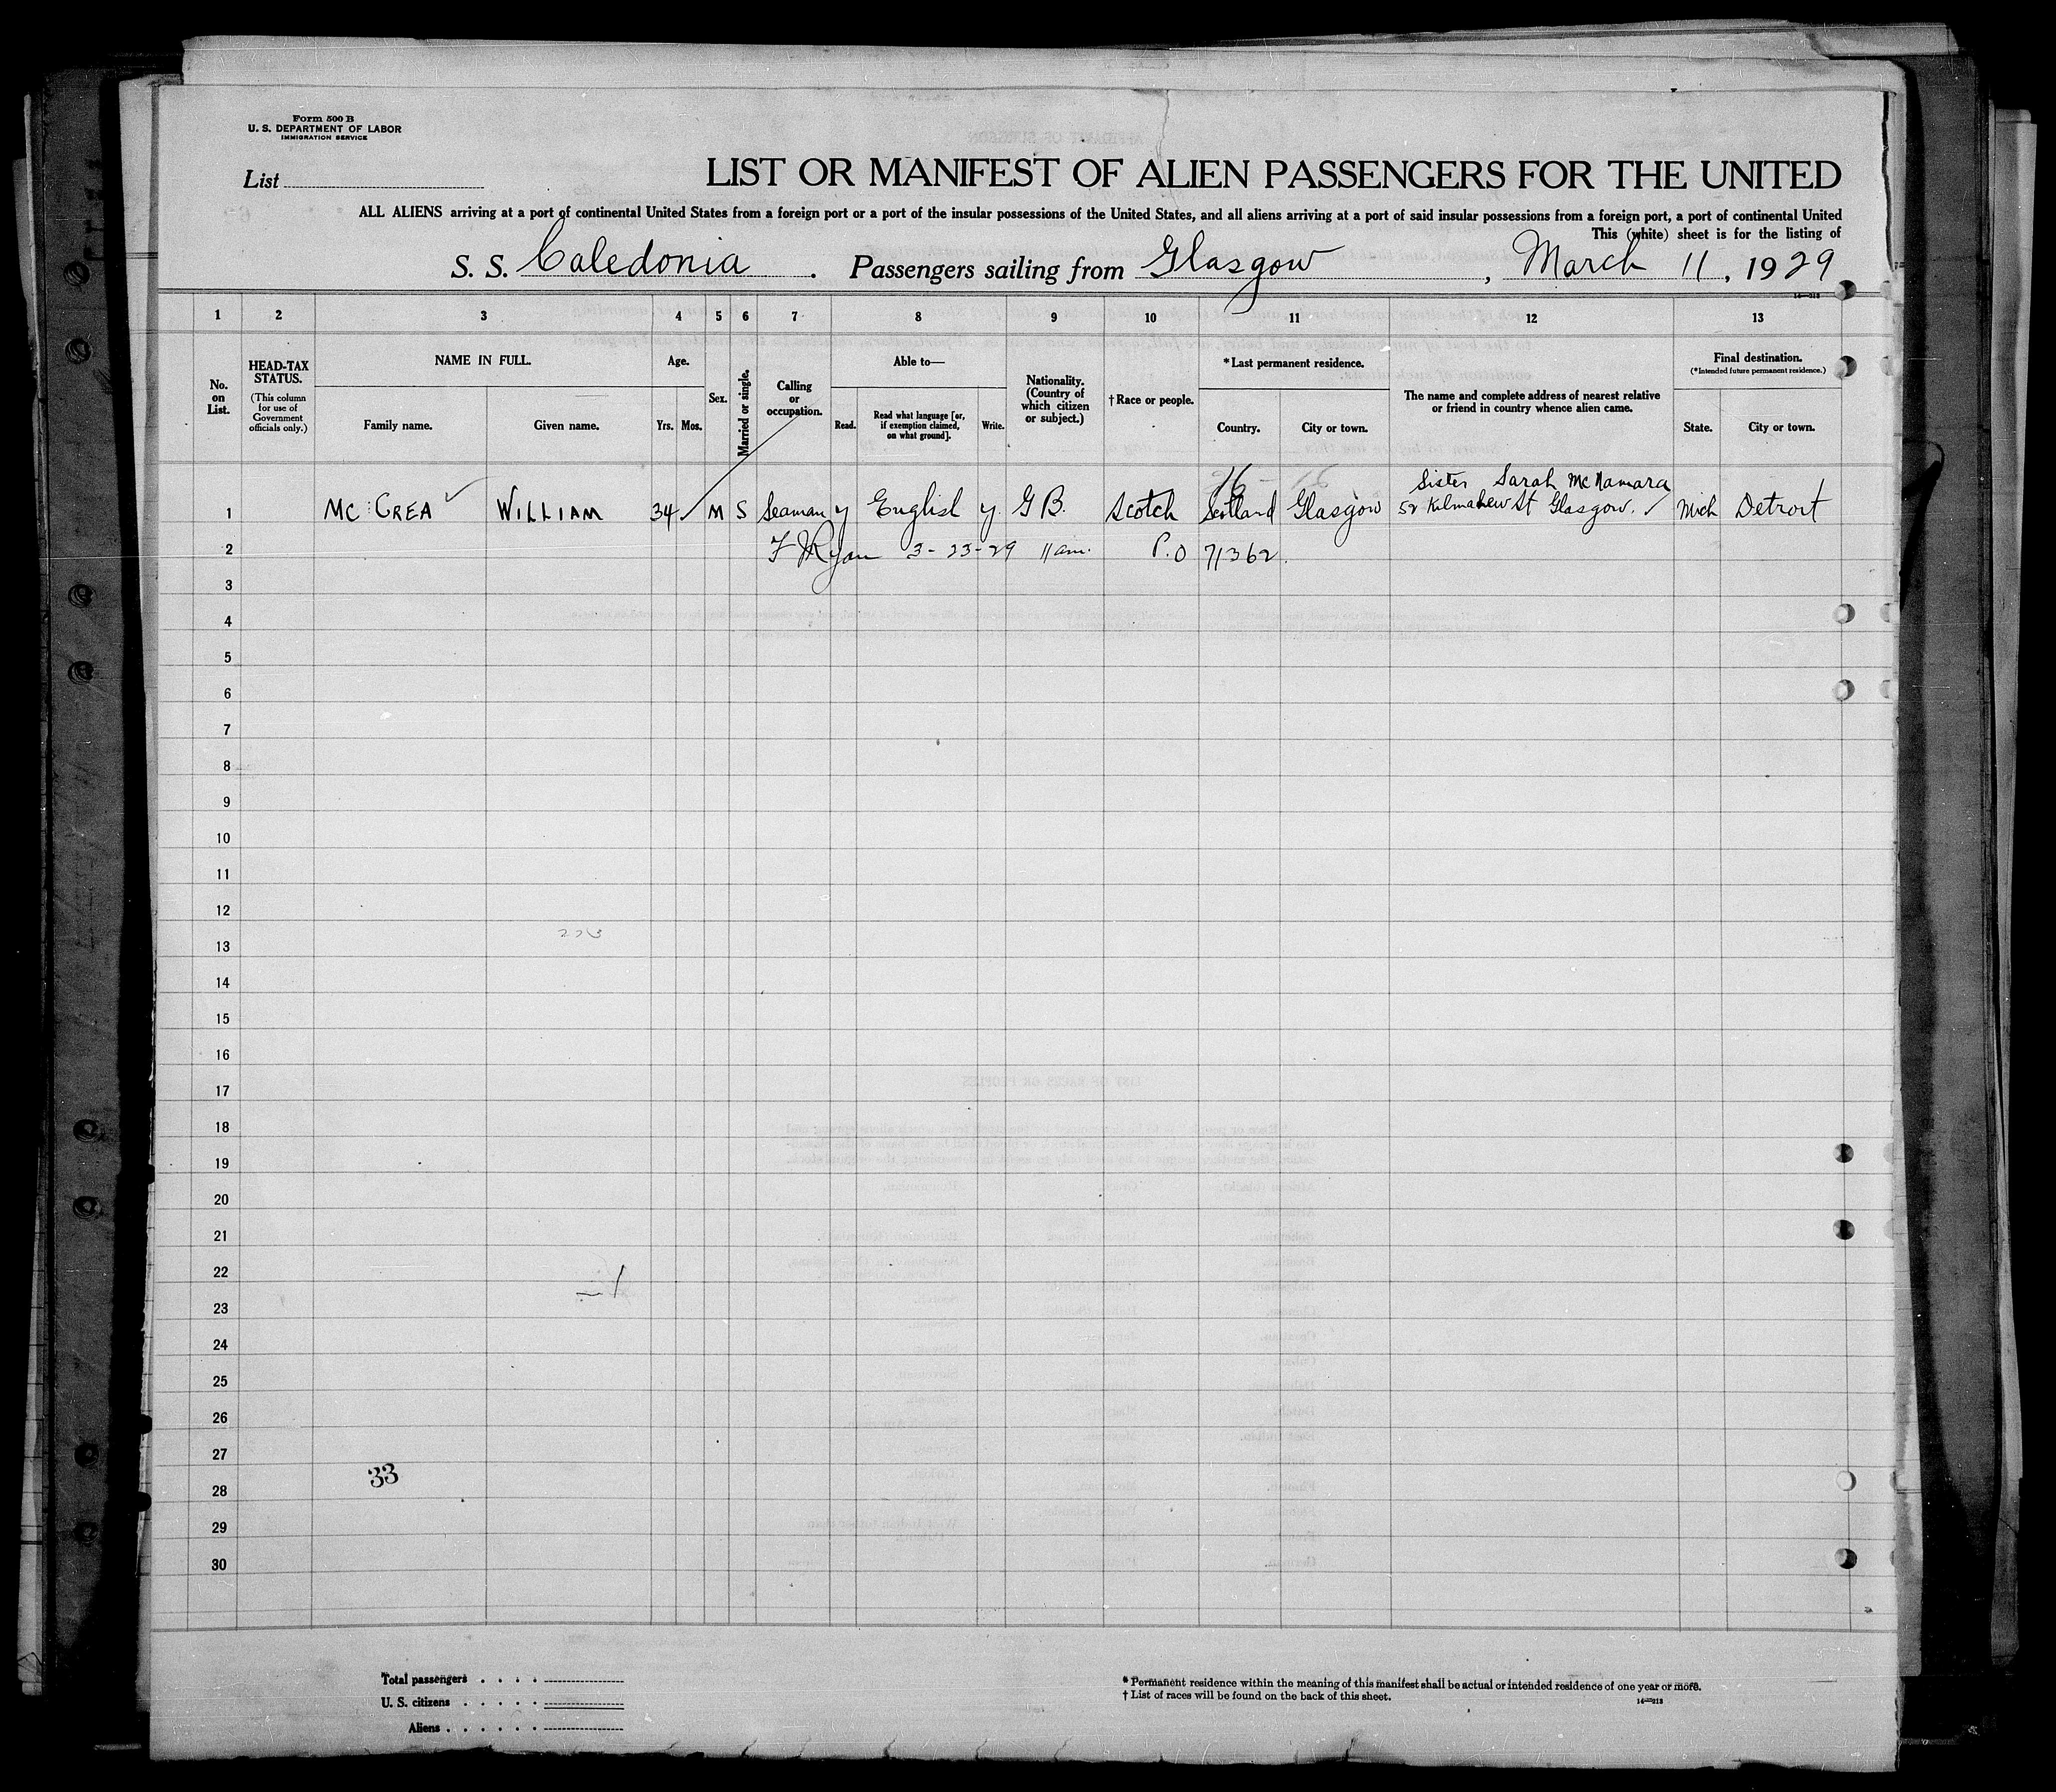 Form 500 B
U. S. DEPARTMENT OF LABOR
IMMIGRATION SERVICE
List
LIST OR MANIFEST OF ALIEN PASSENGERS FOR THE UNITED
ALL ALIENS arriving at a port of continental United States from a foreign port or a port of the insular possessions of the United States, and all aliens arriving at a port of said insular possessions from a foreign port, a port of continental United
This (white) sheet is for the listing of
S. S. Caledonia . Passengers sailing from Glasgow , March 11, 1929
1 2 3 4 5 6 7 8 9 10 11 12 13
No. on List.
HEAD-TAX STATUS.
(This column for use of Government officials only.)
NAME IN FULL.
Family name. Given name.
Age.
Yrs. Mos.
Sex.
Married or single.
Calling or occupation.
Able to—
Read. Read what language [or, if exemption claimed, on what ground]. Write.
Nationality. (Country of which citizen or subject.)
† Race or people.
* Last permanent residence.
Country. City or town.
The name and complete address of nearest relative or friend in country whence alien came.
Final destination.
(*Intended future permanent residence.)
State. City or town.
16
Sister Sarah McNamara
1 Mc CREA WILLIAM 34 M S Seaman y English y G B. Scotch Scotland Glasgow 52 Kilmahew St Glasgow. Mich Detroit
2 F Ryan 3-23-29 11 am. P.O 71362.
3
4
5
6
7
8
9
10
11
12
13
14
15
16
17
18
19
20
21
22
23
24
25
26
27
33
28
29
30
Total passengers . . . .
U. S. citizens . . . . .
Aliens . . . . . .
* Permanent residence within the meaning of this manifest shall be actual or intended residence of one year or more.
† List of races will be found on the back of this sheet.
14—213